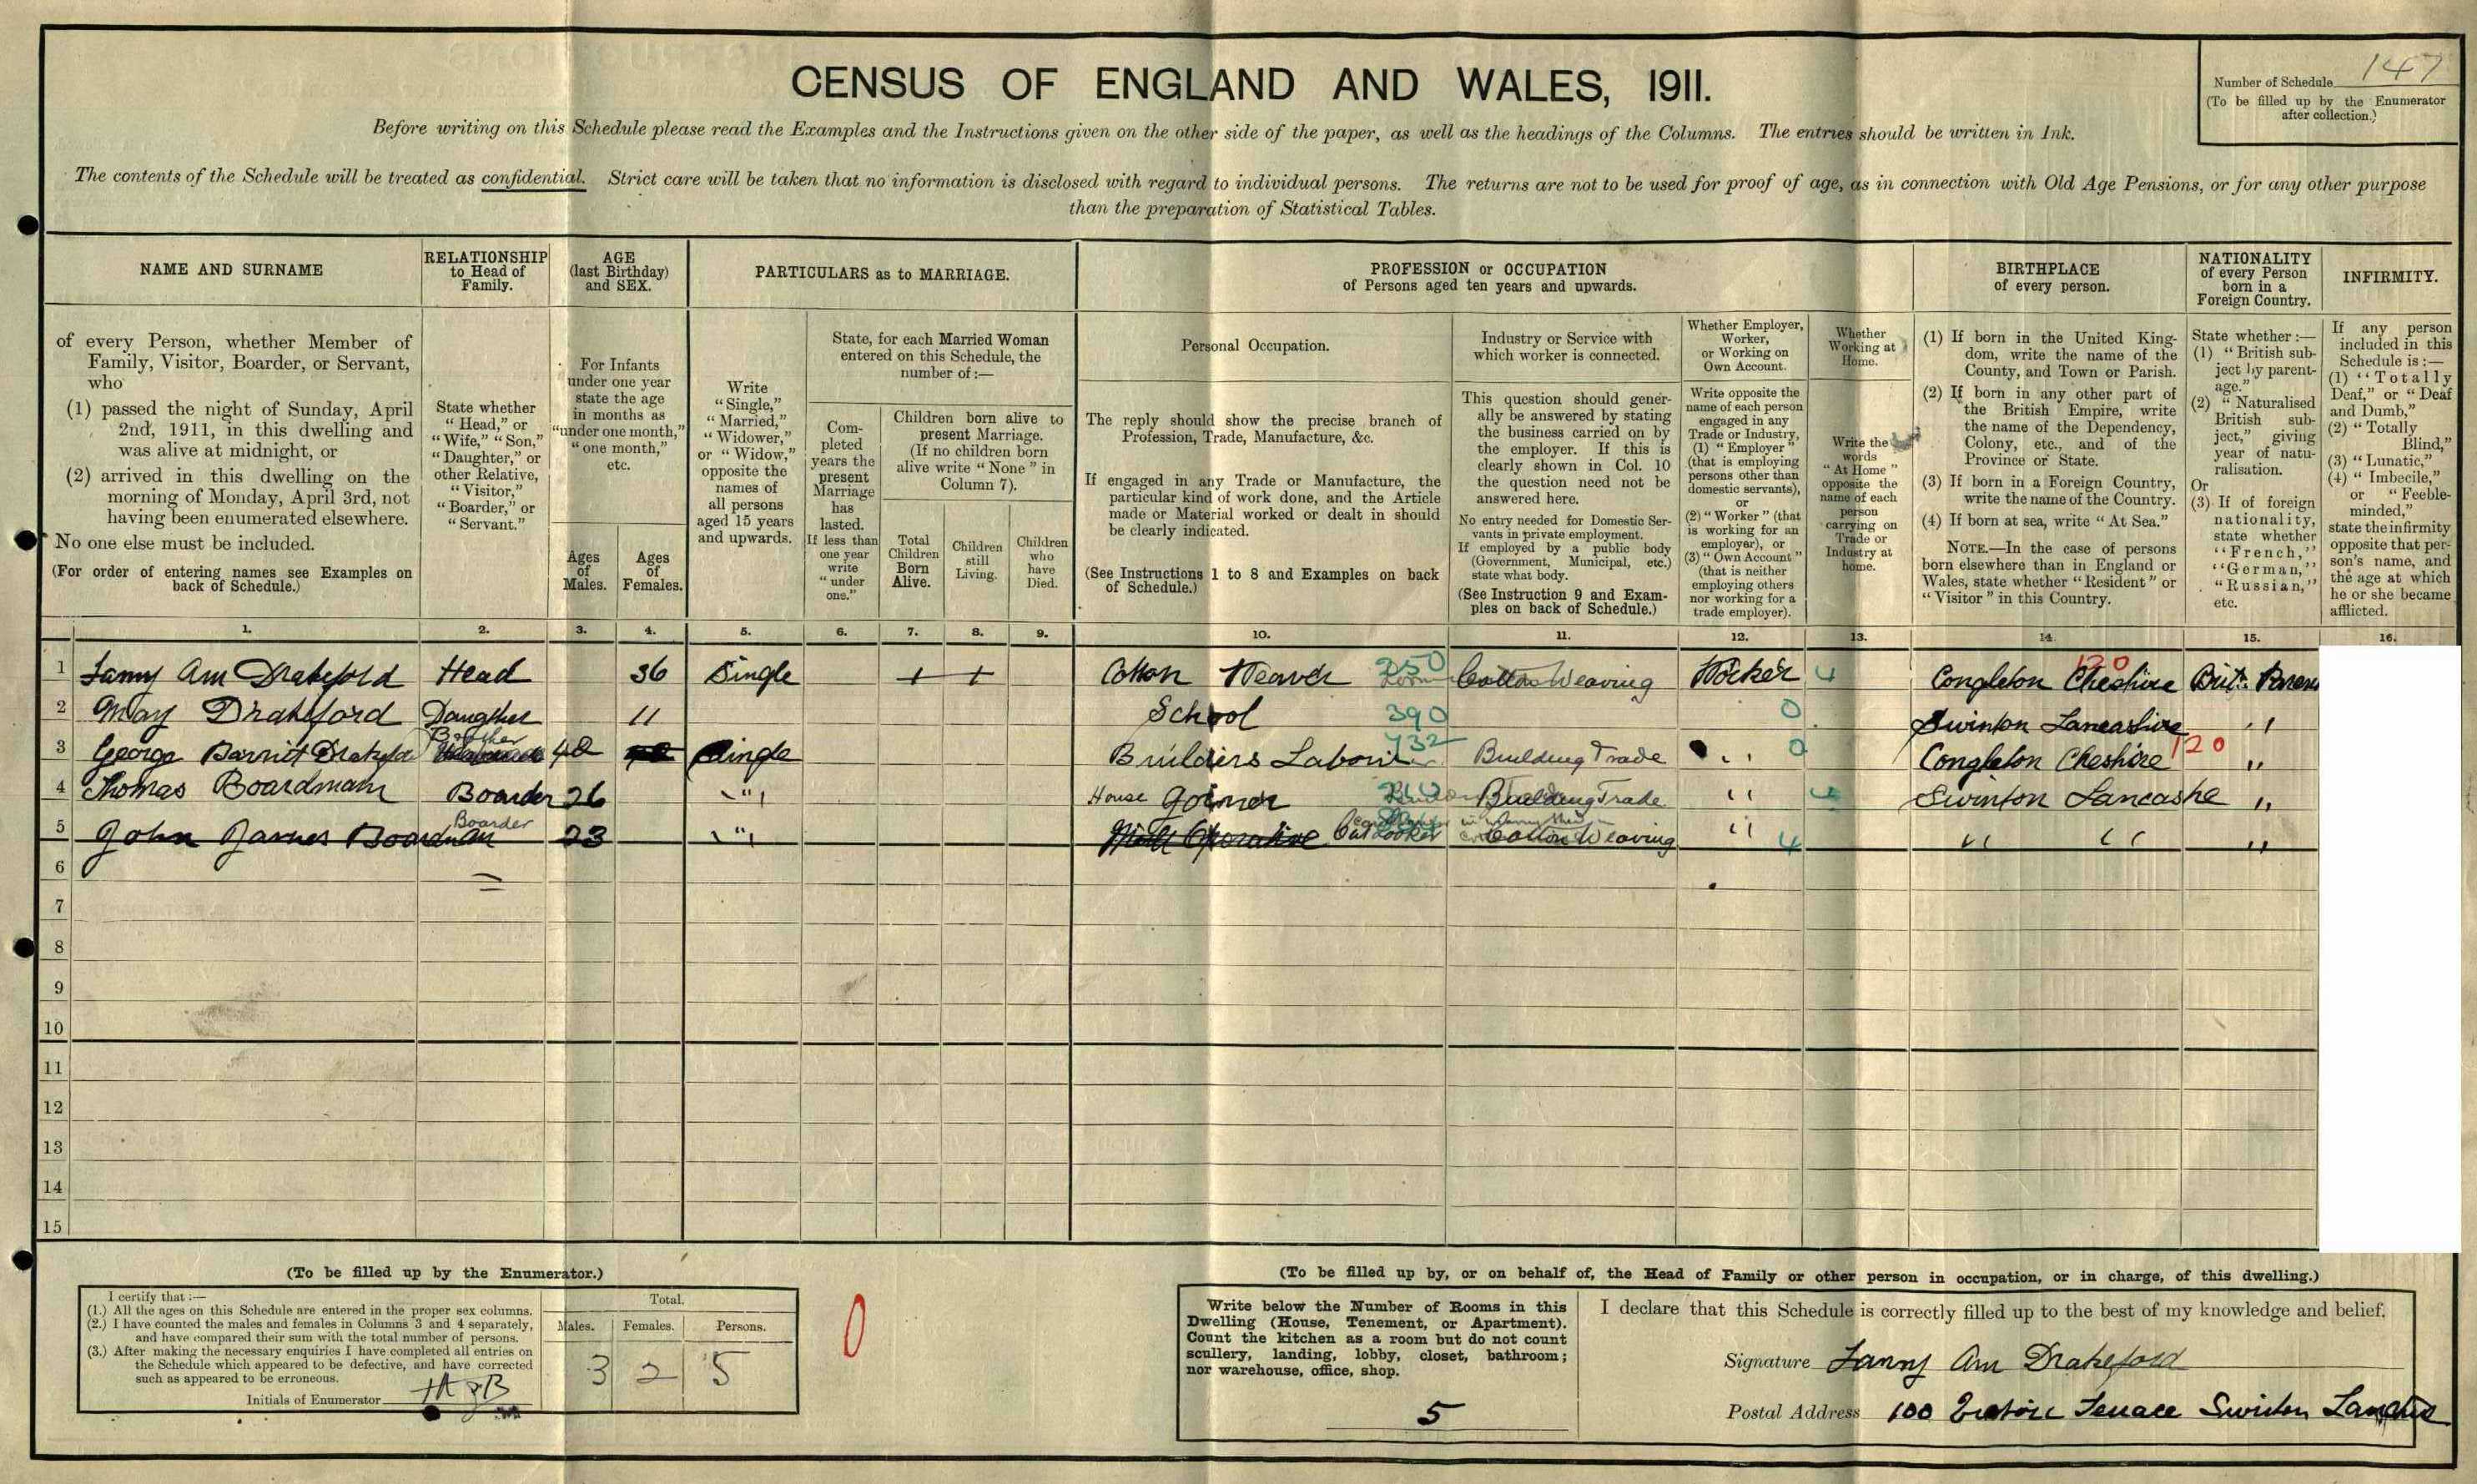 CENSUS OF ENGLAND AND WALES, 1911.
Number of Schedule 147
(To be filled up by the Enumerator
after collection.)
Before writing on this Schedule please read the Examples and the Instructions given on the other side of the paper, as well as the headings of the Columns. The entries should be written in Ink.
The contents of the Schedule will be treated as confidential. Strict care will be taken that no information is disclosed with regard to individual persons. The returns are not to be used for proof of age, as in connection with Old Age Pensions, or for any other purpose
than the preparation of Statistical Tables.
NAME AND SURNAME
of every Person, whether Member of
Family, Visitor, Boarder, or Servant,
who
(1) passed the night of Sunday, April
2nd, 1911, in this dwelling and
was alive at midnight, or
(2) arrived in this dwelling on the
morning of Monday, April 3rd, not
having been enumerated elsewhere.
No one else must be included.
(For order of entering names see Examples on
back of Schedule.)
RELATIONSHIP
to Head of
Family.
State whether
"Head," or
"Wife," "Son,"
"Daughter," or
other Relative,
"Visitor,"
"Boarder," or
"Servant."
AGE
(last Birthday)
and SEX.
For Infants
under one year
state the age
in months as
"under one month,"
"one month,"
etc.
Ages
of
Males.
Ages
of
Females.
PARTICULARS as to MARRIAGE.
Write
"Single,"
"Married,"
"Widower,"
or "Widow,"
opposite the
names of
all persons
aged 15 years
and upwards.
State, for each Married Woman
entered on this Schedule, the
number of:—
Com-
pleted
years the
present
Marriage
has
lasted.
If less than
one year
write
"under
one."
Children born alive to
present Marriage.
(If no children born
alive write "None" in
Column 7).
Total
Children
Born
Alive.
Children
still
Living.
Children
who
have
Died.
PROFESSION or OCCUPATION
of Persons aged ten years and upwards.
Personal Occupation.
The reply should show the precise branch of
Profession, Trade, Manufacture, &c.
If engaged in any Trade or Manufacture, the
particular kind of work done, and the Article
made or Material worked or dealt in should
be clearly indicated.
(See Instructions 1 to 8 and Examples on back
of Schedule.)
Industry or Service with
which worker is connected.
This question should gener-
ally be answered by stating
the business carried on by
the employer. If this is
clearly shown in Col. 10
the question need not be
answered here.
No entry needed for Domestic Ser-
vants in private employment.
If employed by a public body
(Government, Municipal, etc.)
state what body.
(See Instruction 9 and Exam-
ples on back of Schedule.)
Whether Employer,
Worker,
or Working on
Own Account.
Write opposite the
name of each person
engaged in any
Trade or Industry,
(1) "Employer"
(that is employing
persons other than
domestic servants),
or
(2) "Worker" (that
is working for an
employer), or
(3) "Own Account"
(that is neither
employing others
nor working for a
trade employer).
Whether
Working at
Home.
Write the
words
"At Home"
opposite the
name of each
person
carrying on
Trade or
Industry at
home.
BIRTHPLACE
of every person.
(1) If born in the United King-
dom, write the name of the
County, and Town or Parish.
(2) If born in any other part of
the British Empire, write
the name of the Dependency,
Colony, etc., and of the
Province or State.
(3) If born in a Foreign Country,
write the name of the Country.
(4) If born at sea, write "At Sea."
NOTE.—In the case of persons
born elsewhere than in England or
Wales, state whether "Resident" or
"Visitor" in this Country.
NATIONALITY
of every Person
born in a
Foreign Country.
State whether:—
(1) "British sub-
ject by parent-
age."
(2) "Naturalised
British sub-
ject," giving
year of natu-
ralisation.
Or
(3) If of foreign
nationality,
state whether
"French,"
"German,"
"Russian,"
etc.
INFIRMITY.
If any person
included in this
Schedule is:—
(1) "Totally
Deaf," or "Deaf
and Dumb,"
(2) "Totally
Blind,"
(3) "Lunatic,"
(4) "Imbecile,"
or "Feeble-
minded,"
state the infirmity
opposite that per-
son's name, and
the age at which
he or she became
afflicted.
1. 2. 3. 4. 5. 6. 7. 8. 9. 10. 11. 12. 13. 14. 15. 16.
1 Fanny Ann Drakeford Head 36 Single Cotton Weaver 250 Cotton Weaving Worker 4 Congleton Cheshire 120 Brit.
2 May Drakeford Daughter 11 School 390 0 Swinton Lancashire "
3 George Drakeford Brother 42 Single Builders Labourer 732 Building Trade " 0 Congleton Cheshire 120 "
4 Thomas Boardman Boarder 26 " House Joiner Building Trade " Swinton Lancashe "
5 John James Boardman Boarder 23 " Mill Operative Cut Looker Cotton Weaving " 4 " " "
6
7
8
9
10
11
12
13
14
15
(To be filled up by the Enumerator.)
I certify that:—
(1.) All the ages on this Schedule are entered in the proper sex columns.
(2.) I have counted the males and females in Columns 3 and 4 separately,
and have compared their sum with the total number of persons.
(3.) After making the necessary enquiries I have completed all entries on
the Schedule which appeared to be defective, and have corrected
such as appeared to be erroneous.
Initials of Enumerator
Total.
Males. Females. Persons.
3 2 5
0
(To be filled up by, or on behalf of, the Head of Family or other person in occupation, or in charge, of this dwelling.)
Write below the Number of Rooms in this
Dwelling (House, Tenement, or Apartment).
Count the kitchen as a room but do not count
scullery, landing, lobby, closet, bathroom;
nor warehouse, office, shop.
5
I declare that this Schedule is correctly filled up to the best of my knowledge and belief.
Signature Fanny Ann Drakeford
Postal Address 100 Terrace Swinton